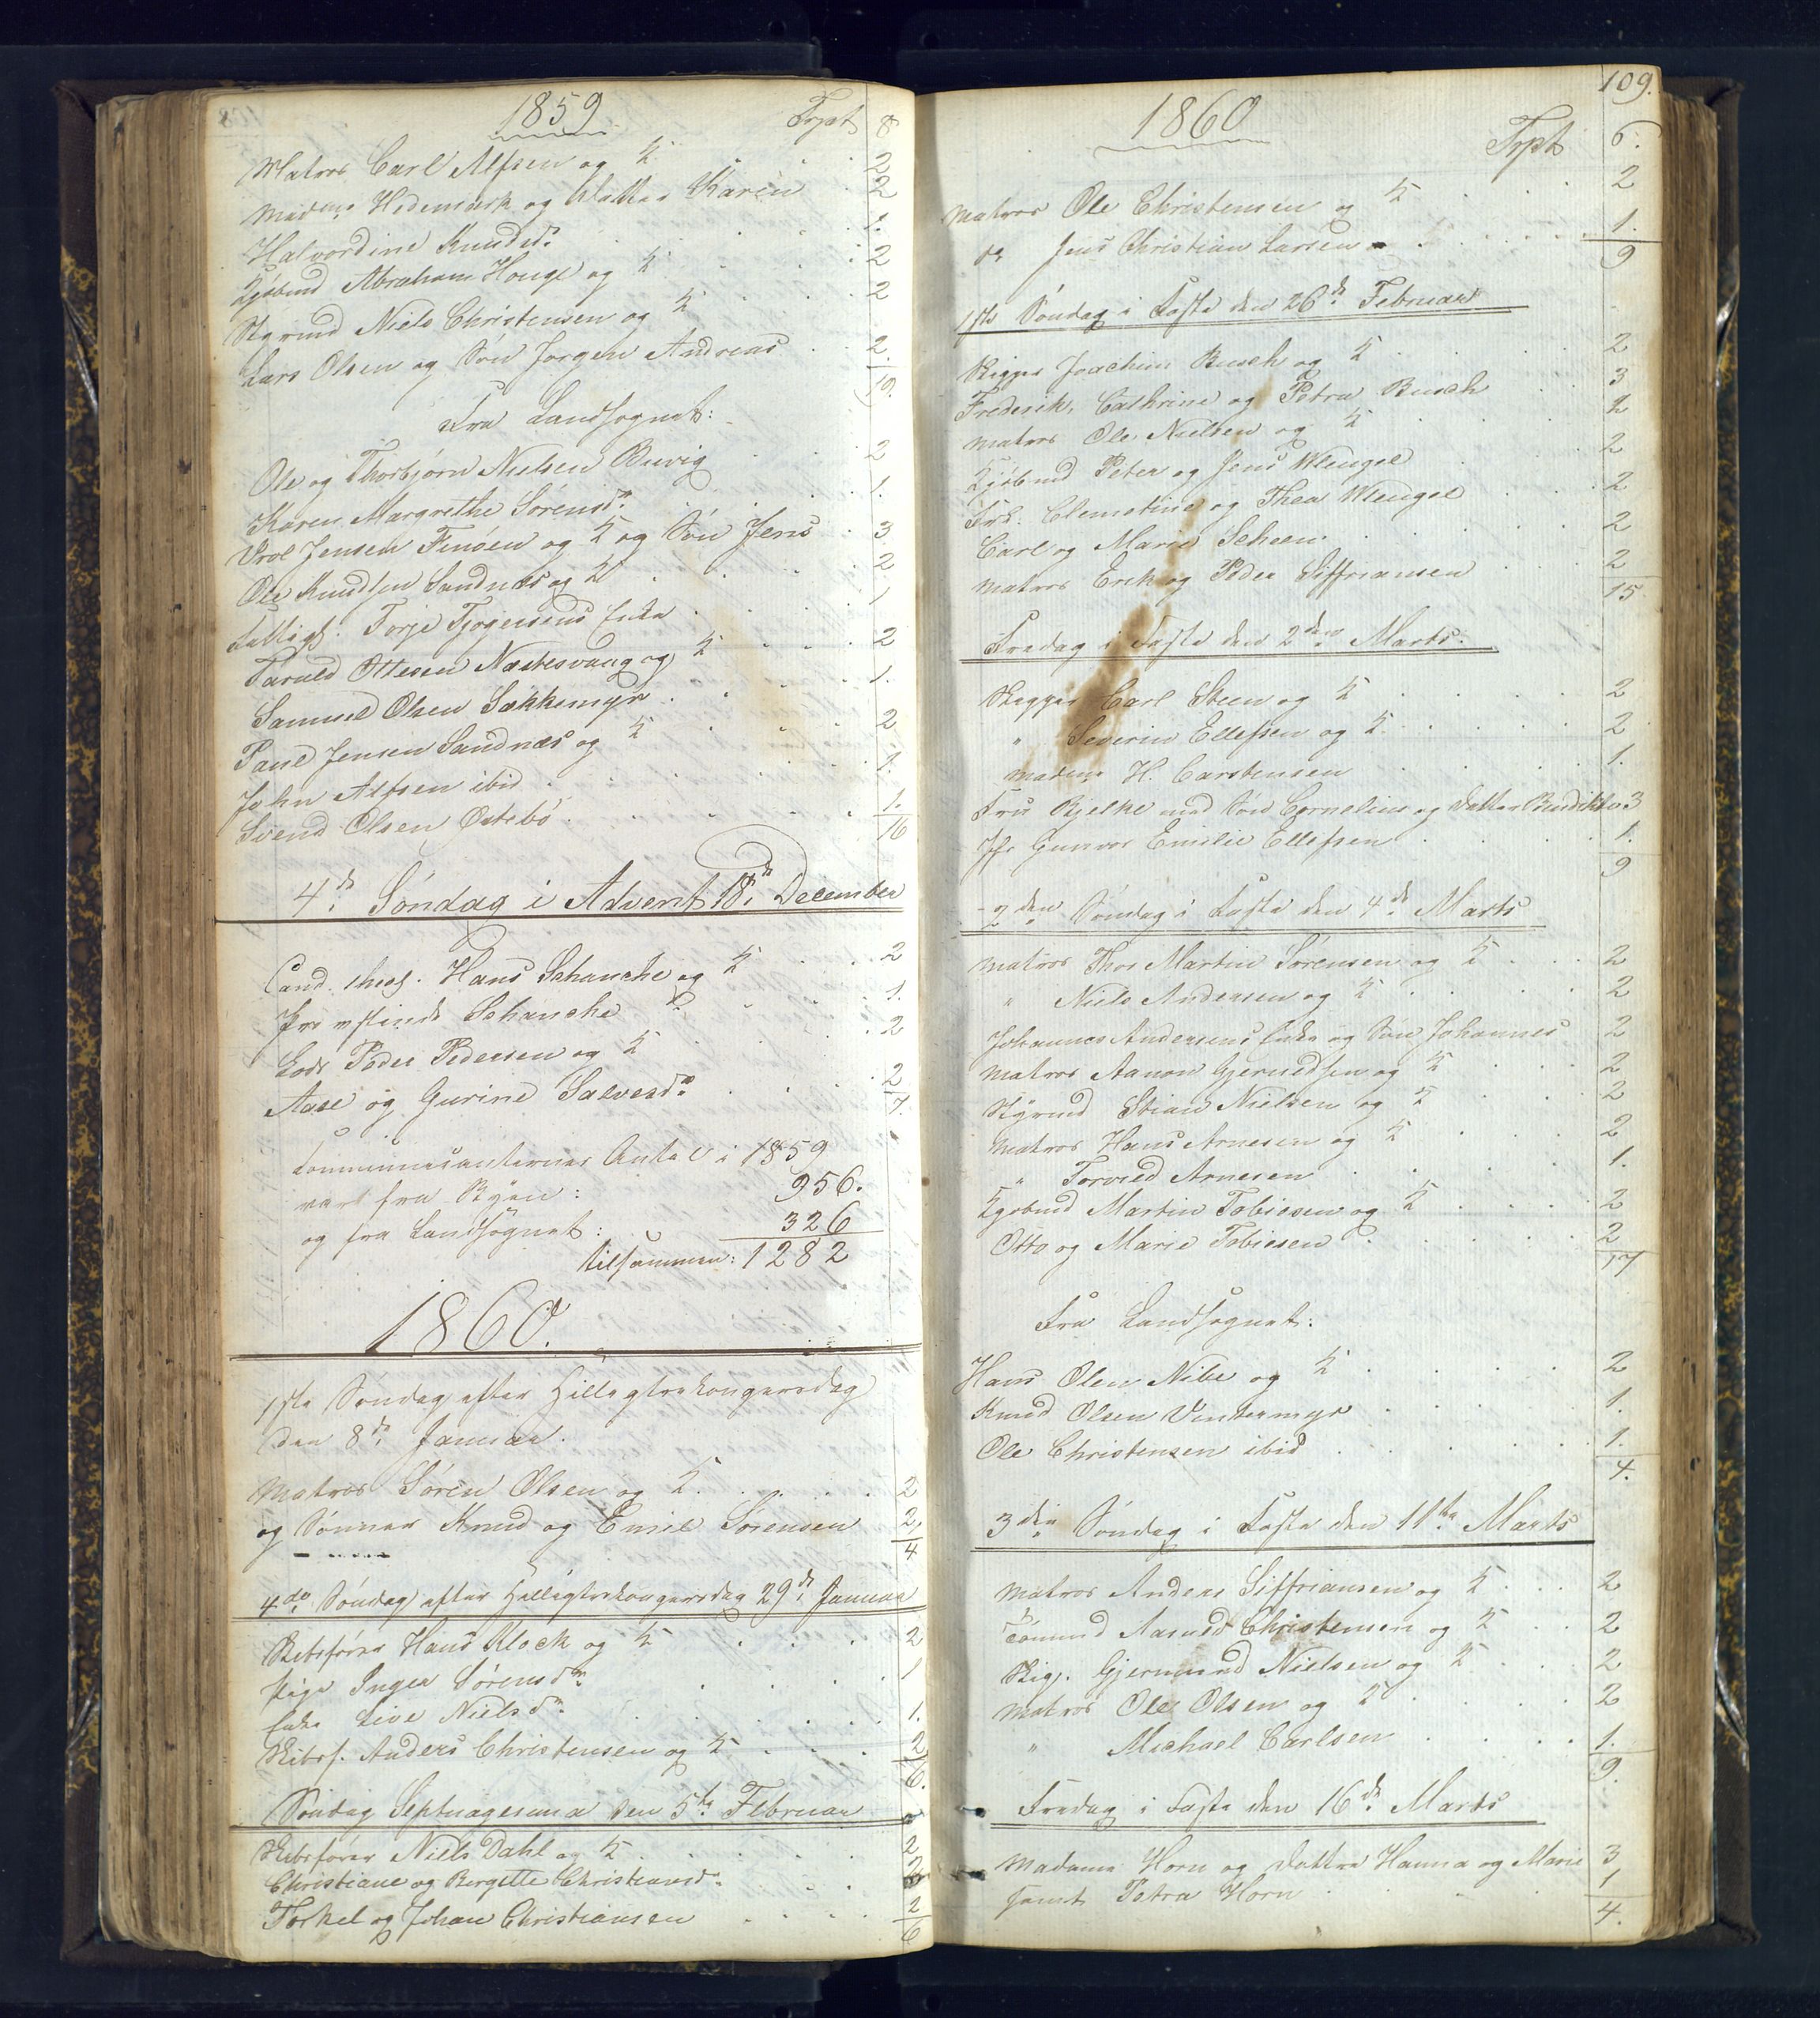 1859
Trpt 8
Matros Carl Alfsen og K 2
Madme Hedemark og Datter Karen 2
Halvordine Knudsdr 1.
Kjøbmd Abraham Houge og K 2
Styrmd Niels Christensen og K 2
Lars Olsen og Søn Jørgen Andreas 2.
19.
Fra Landsognet:
Ole og Thorbjørn Nielsen Buvig 2
Karen Margrethe Sørensdr 1.
Jensen Finøen og K og Søn Jens 3
Ole Knudsen Sandnæs og K 2
Fattigl. Torje Tjøgersens Enke 1
Taruld Ottesen Næstesvang og K 2
Samuel Olsen Sækkemyr 1.
Paul Jensen Sandnæs og K 2
John Alfsen ibid 1.
Svend Olsen Østebø 1.
16
4de Søndag i Advent 18de December
Cand. theol. Hans Schanche og K 2
Provstinde Schanche 1.
Lods Peder Pedersen og K 2
Aase og Gurine Salvesdr 2
7.
Communicanternes Antal i 1859
vare fra Byen: 956.
og fra Landsognet: 326
tilsammen: 1282
1860.
1ste Søndag efter Helligtrekongersdag
den 8de Januar.
Matros Søren Olsen og K 2
og Sønner Knud og Emil Sørensen 2
4
4de Søndag efter Helligtrekongersdag 29de Januar
Skibsfører Hans Klock og K 2
Pige Inger Sørensdr 1
Enke Live Nielsdr 1.
Skibsf. Anders Christensen og K 2
6.
Søndag Septuagesima den 5te Februar
Skibsfører Niels Dahl og K 2
Christiane og Bergitte Christiansdr 2
Torkel og Johan Christiansen 2
6
109.
1860
Trpt 6.
Matros Ole Christensen og K 2
do Jens Christian Larsen 1.
9
1ste Søndag i Faste den 26de Februar
Skipper Joachim Busch og K 2
Frederik, Cathrine og Petra Busch 3
Matros Ole Nielsen og K 2
Kjøbmd Peter og Jens Wengel 2
Frk. Clementine og Thea Wengel 2
Carl og Marie Scheen 2
Matros Erik og Peder Siffriansen 2
15
Fredag i Faste den 2den Marts.
Skipper Carl Steen og K 2
" Severin Ellefsen og K 2
Madme H. Carstensen 1.
Fru Bjelke med Søn Cornelius og Datter Bendikte 3
Jfr Gunvor Emilie Ellefsen 1.
9
2den Søndag i Faste den 4de Marts
Matros Thor Martin Sørensen og K 2
" Niels Andersen og K 2
Johannes Andersens Enke og Søn Johannes 2
Matros Aanon Gjeruldsen og K 2
Styrmd Stian Nielsen og K 2
Matros Hans Arnesen og K 2
" Torvild Arnesen 1.
Kjøbmd Martin Tobiesen og K 2
Otto og Marie Tobiesen 2
17
Fra Landsognet:
Hans Olsen Nibe og K 2
Knud Olsen Vintermyr 1.
Ole Christensen ibid 1.
4.
3die Søndag i Faste den 11te Marts
Matros Anders Siffriansen og K 2
Tømmd Aanuld Christensen og K 2
Skip. Gjermund Nielsen og K 2
Matros Ole Olsen og K 2
" Michael Carlsen 1.
9.
Fredag i Faste den 16de Marts
Madame Horn og Døttre Hanna og Marie 3
samt Petra Horn 1
4.